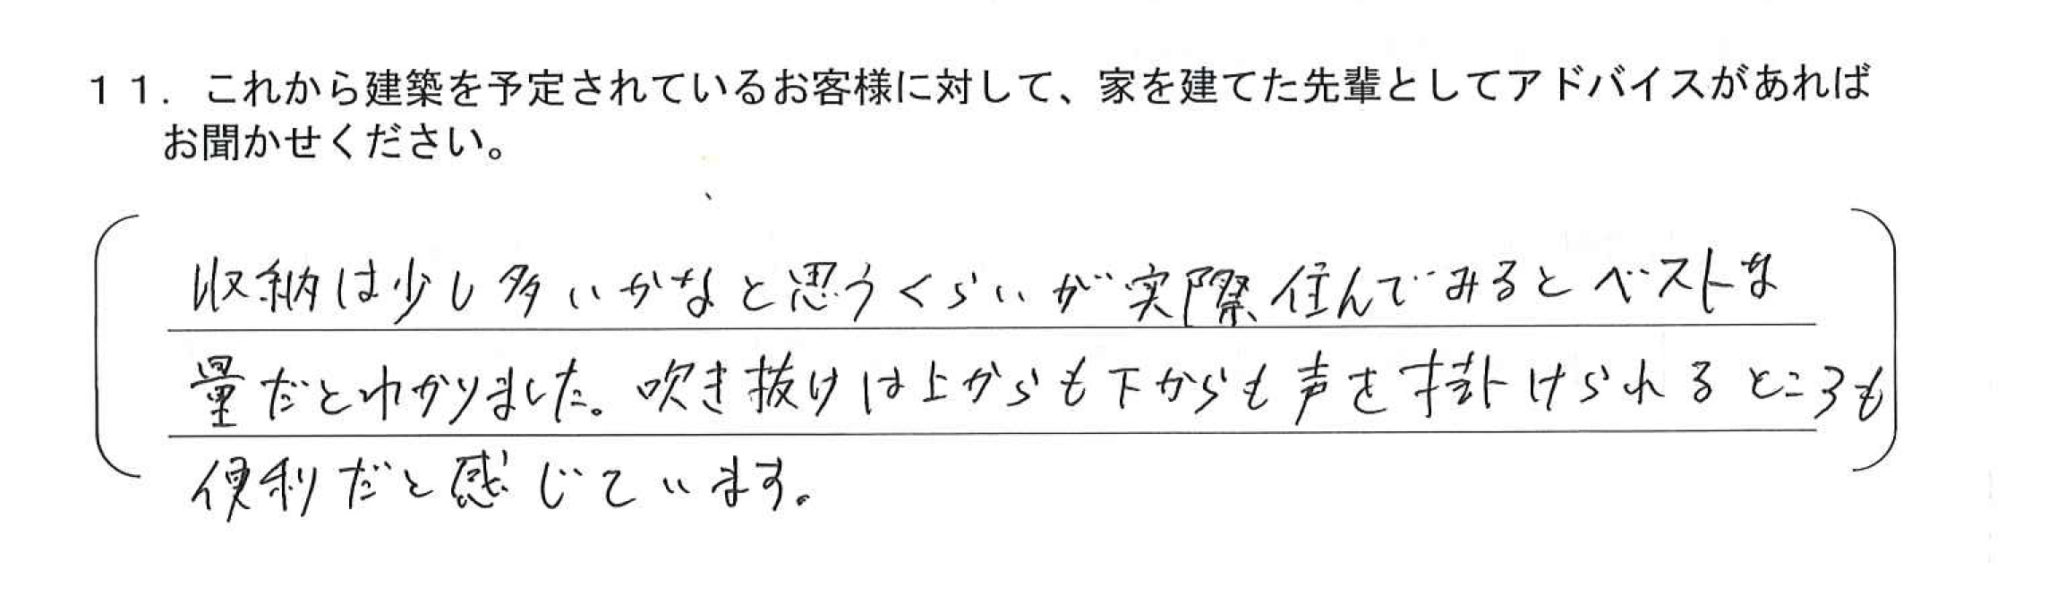 １１．これから建築を予定されているお客様に対して、家を建てた先輩としてアドバイスがあれば
お聞かせください。
収納は少し多いかなと思うくらいが実際住んでみるとベストな
量だとわかりました。吹き抜けは上からも下からも声を掛けられるところも
便利だと感じています。